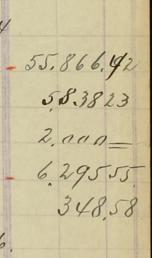 55.866.92
58.3823
2.000=
6.29555
348.58
6.